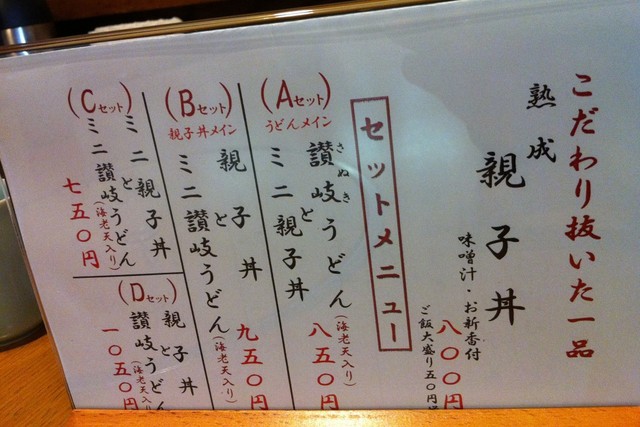 こだわり抜いた一品
熟成
親子丼
味噌汁・お新香付
八〇〇円
ご飯大盛り五〇円
セットメニュー
(Aセット)
うどんメイン
讃岐うどん
さぬき
と
ミニ親子丼
(海老天入り)
八五〇円
(Bセット)
親子丼メイン
親子丼
と
ミニ讃岐うどん
(海老天入り)
九五〇円
(Cセット)
ミニ親子丼
と
ミニ讃岐うどん
(海老天入り)
七五〇円
(Dセット)
親子丼
と
讃岐うどん
(海老天入り)
一〇五〇円